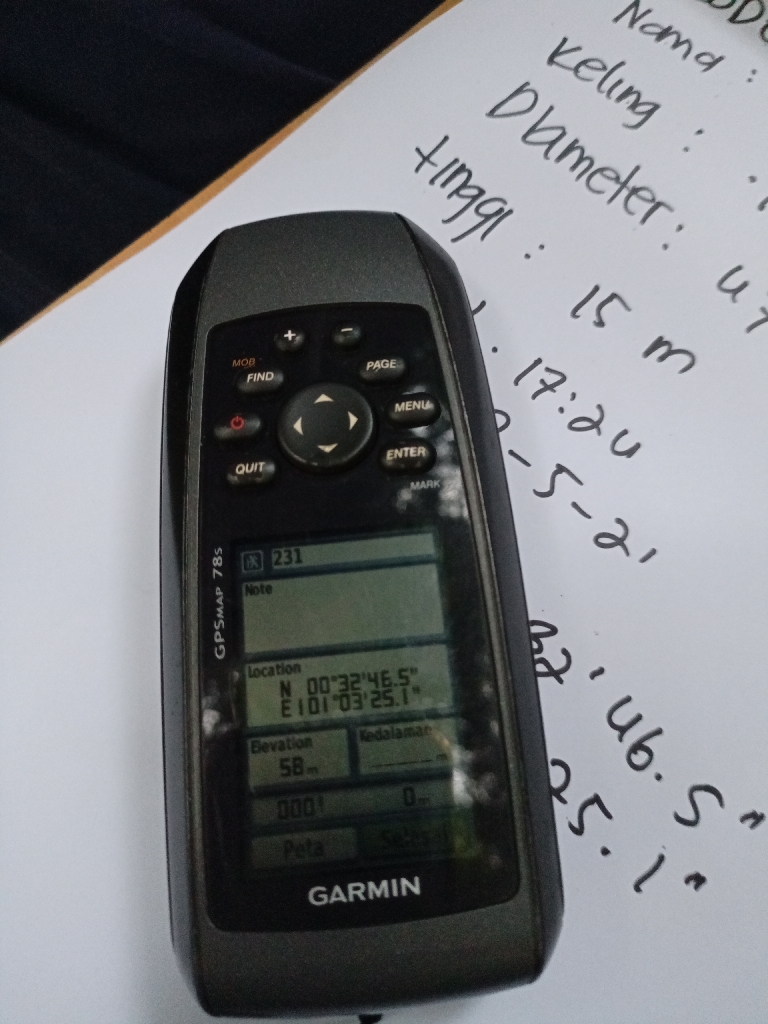 Nama :
Keling :
Diameter:
tinggi : 15 m
17:24
-5-21
32' 46.5"
25.1"
+ -
MOB
FIND PAGE
MENU
QUIT ENTER
MARK
GPSMAP 78s
231
Note
Location
N 00°32'46.5"
E101°03'25.1"
Elevation Kedalaman
58m ______m
0001 0m
Peta Selesai
GARMIN